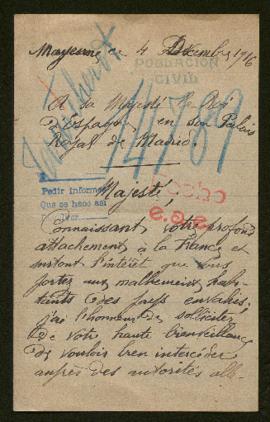 Mayenne le 4 Décembre 1916
POBLACIÓN
CIVIL
A Sa Majesté le Roi
d'Espagne, en son Palais
Royal de Madrid.
14789
Pedir informes
Que se hace así
Majesté,
Connaissant votre profond
attachement à la France et
surtout l'intérêt que Vous
portez aux malheureux habi-
tants des pays envahis,
j'ai l'honneur de solliciter
de votre haute bienveillance
de vouloir bien intercéder
auprès des autorités alle-